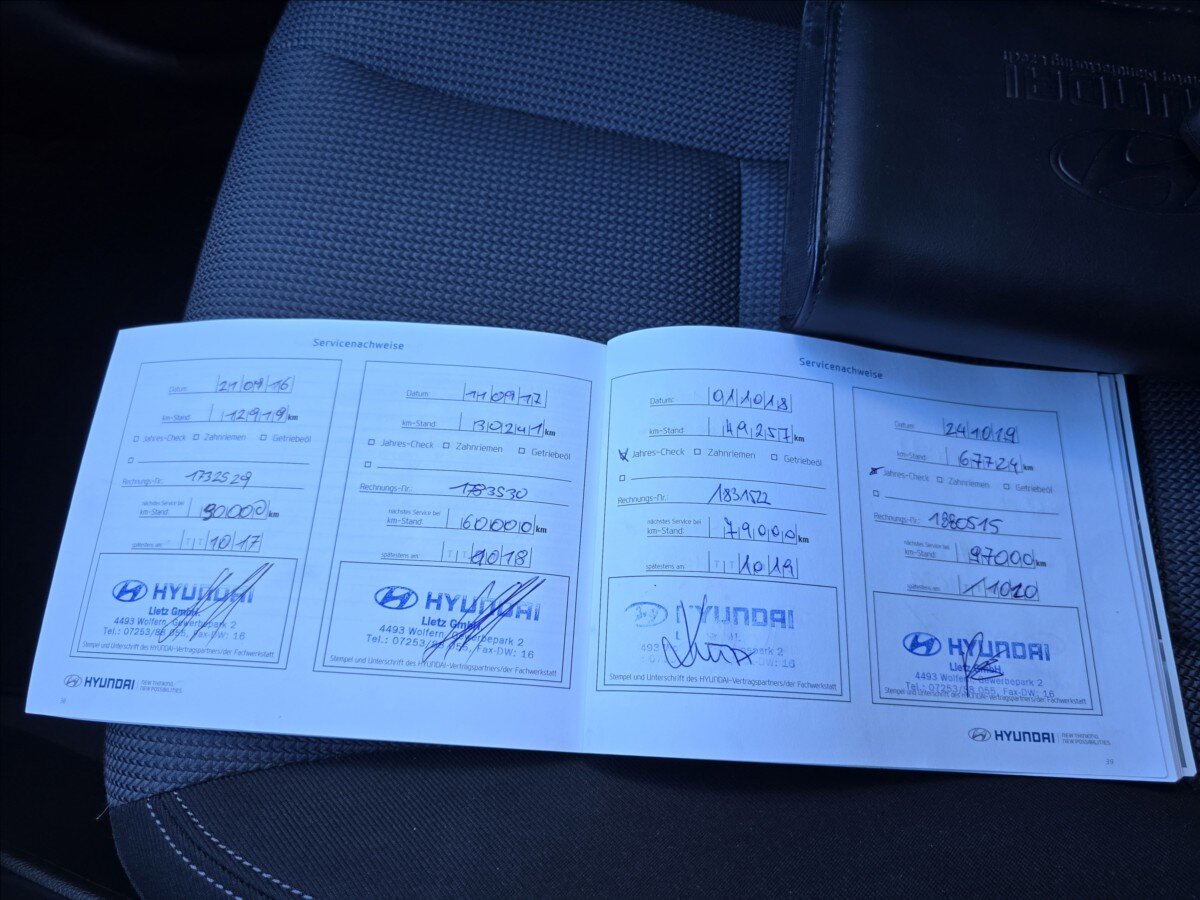 Servicenachweise
Datum: 21 09 16
km-Stand: 12919 km
Jahres-Check Zahnriemen Getriebeöl
Rechnungs-Nr.: 1732529
nächstes Service bei
km-Stand: 30000 km
spätestens am: TT 10 17
HYUNDAI
Lietz GmbH
4493 Wolfern, Gewerbepark 2
Tel.: 07253/88 055, Fax-DW: 16
Stempel und Unterschrift des HYUNDAI-Vertragspartners/der Fachwerkstatt
Datum: 11 09 17
km-Stand: 30241 km
Jahres-Check Zahnriemen Getriebeöl
Rechnungs-Nr.: 1783530
nächstes Service bei
km-Stand: 60000 km
spätestens am: TT 10 18
HYUNDAI
Lietz GmbH.
4493 Wolfern, Gewerbepark 2
Tel.: 07253/88 055, Fax-DW: 16
Stempel und Unterschrift des HYUNDAI-Vertragspartners/der Fachwerkstatt
HYUNDAI NEW THINKING.
NEW POSSIBILITIES.
38
Servicenachweise
Datum: 01 10 18
km-Stand: 49257 km
Jahres-Check Zahnriemen Getriebeöl
Rechnungs-Nr.: 1831522
nächstes Service bei
km-Stand: 79000 km
spätestens am: TT 10 19
HYUNDAI
055, Fax-DW: 16
Stempel und Unterschrift des HYUNDAI-Vertragspartners/der Fachwerkstatt
Datum: 24 10 19
km-Stand: 67724 km
Jahres-Check Zahnriemen Getriebeöl
Rechnungs-Nr.: 1880515
nächstes Service bei
km-Stand: 97000 km
spätestens am: 10 20
HYUNDAI
Lietz GmbH
4493 Wolfern, Gewerbepark 2
Tel.: 07253/88 055, Fax-DW: 16
Stempel und Unterschrift des HYUNDAI-Vertragspartners/der Fachwerkstatt
HYUNDAI NEW THINKING.
NEW POSSIBILITIES.
39